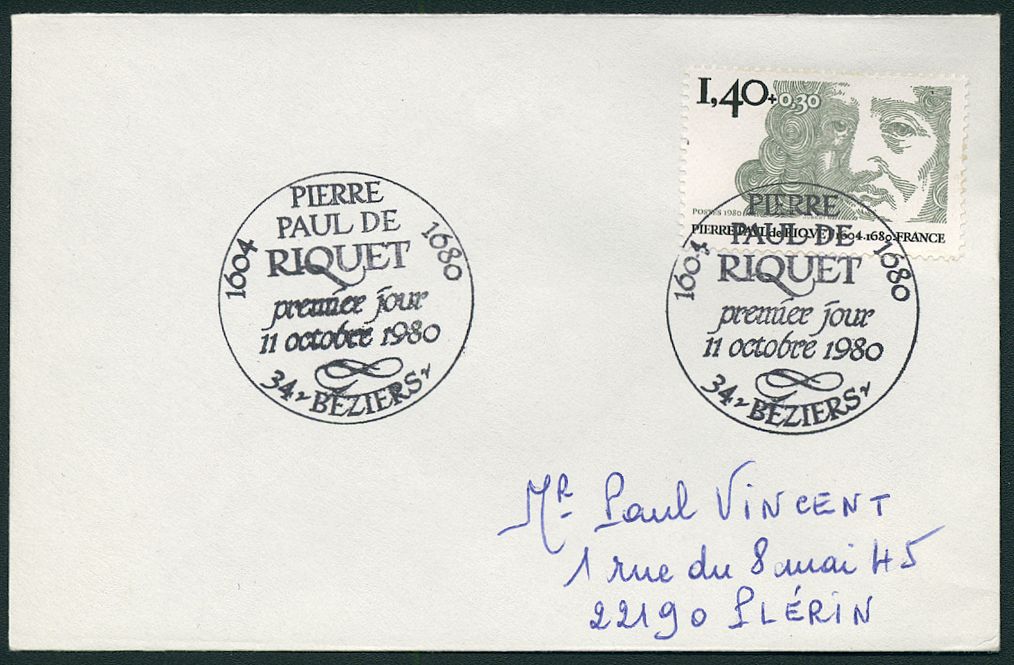 1,40+0,30
POSTES 1980
PIERRE PAUL de RIQUET 1604.1680.FRANCE
PIERRE
PAUL DE
RIQUET
1604 1680
premier jour
11 octobre 1980
34 ~ BÉZIERS ~
PIERRE
PAUL DE
RIQUET
1604 1680
premier jour
11 octobre 1980
34 ~ BÉZIERS ~
Mr Paul VINCENT
1 rue du 8 mai 45
22190 PLÉRIN